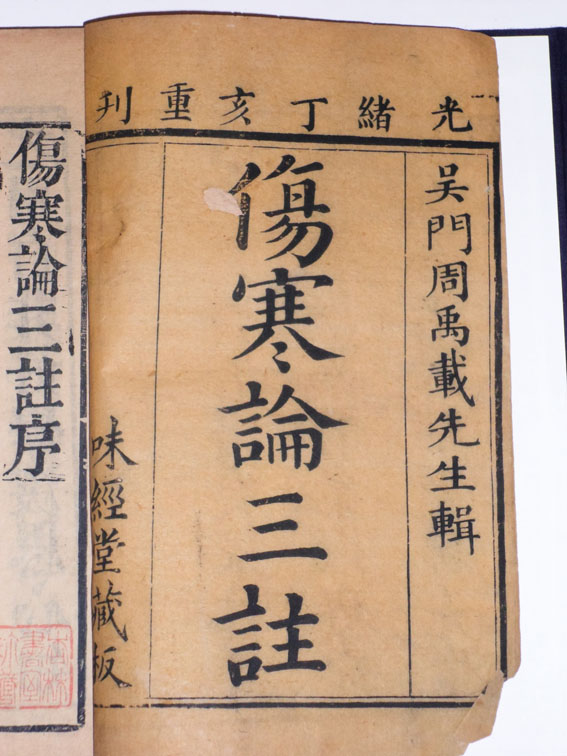 光緒丁亥重刋
吴門周禹載先生輯
傷寒論三註
味經堂藏板
傷寒論三註序